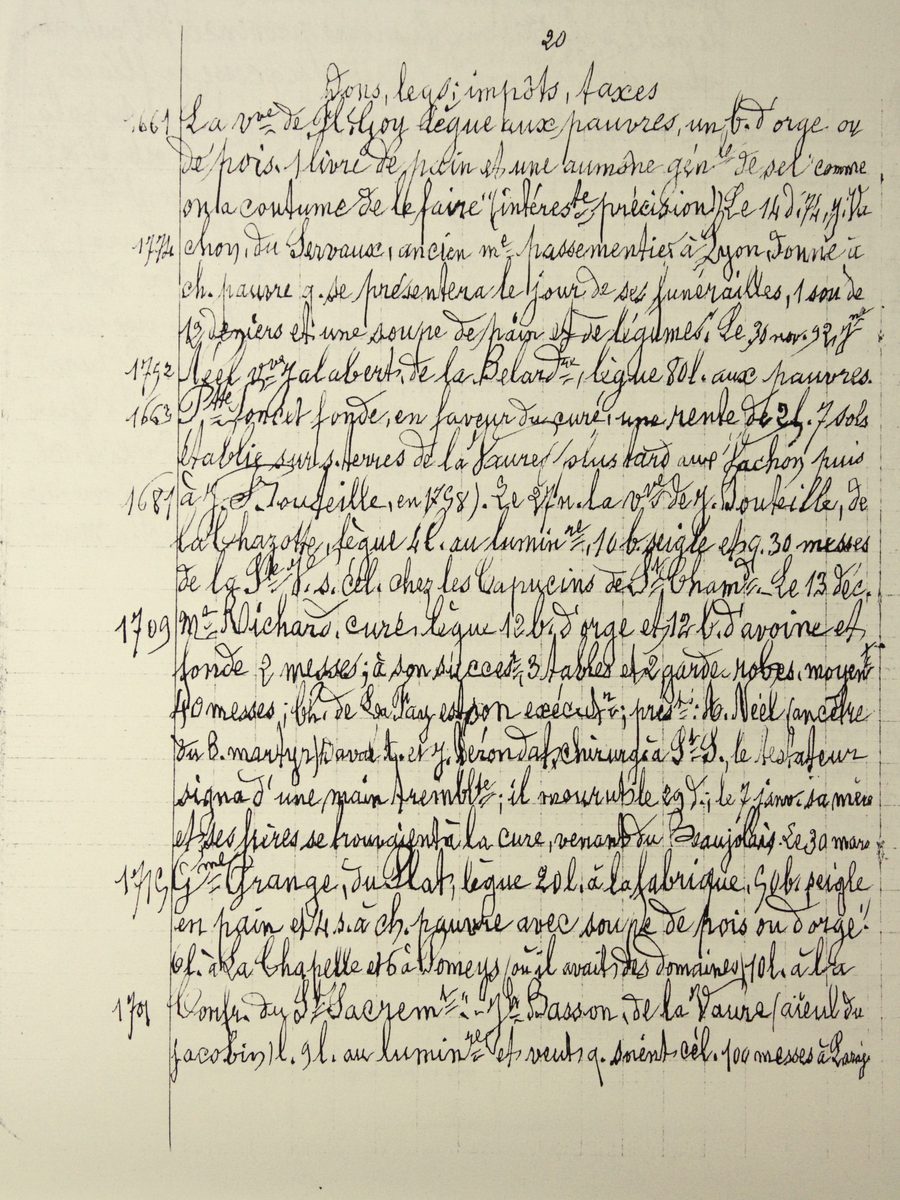 20
Dons, legs; impôts, taxes
1661 La vve de Goy lègue aux pauvres, un b. d'orge ou
de pois, 1 livre de pain et une aumône génle de sel "comme
on a coutume de le faire" (intéreste précision). Le 14 d. 74, J. Va
1774 chon, du Servaux, ancien me passementier à Lyon, donne à
ch. pauvre q. se présentera le jour de ses funérailles, 1 sou de
12 deniers et une soupe de pain et de légumes. Le 30 nov. 92,
1792 Néel vve Jalabert, de la Belardre, lègue 80 l. aux pauvres.
1663 Ptte fonde, en faveur du curé, une rente de 2 l. 7 sols
établie sur s. terres de la Vaure (plus tard aux Vachon, puis
1681 à J. Bouteille, en 1798). Le 27 n. la vve de J. Bouteille, de
la Chazotte, lègue 4 l. au luminre, 10 b. seigle et q. 30 messes
de la Ste V. s. cél. chez les Capucins de St Chamd. - Le 13 déc.
1709 Mre Richard, curé, lègue 12 b. d'orge et 12 b. d'avoine et
fonde 2 messes; à son succesr, 3 tables et 2 garde-robes, moyent
40 messes; Ch. de La Fay est son exécutr; présts: A. Néel (ancêtre
du B. martyr) et J. Bérondat, chirurg. à St S., le testateur
signa d'une main tremblte; il mourut le 29 d.; le 7 janv. sa mère
et ses frères se trouvaient à la cure, venant du Beaujolais. Le 30 mars
Gme Grange, du Plat, lègue 20 l. à la fabrique, 50 b. seigle
en pain et 4 s. à ch. pauvre avec soupe de pois ou d'orge."
6 l. à La Chapelle et 6 à Pomeys (où il avait des domaines) 10 l. à la
1701 Confr. du St Sacremt. - Jn Basson, de la Vaure (aïeul du
jacobin) l. 9 l. au luminre et veut q. soient cél. 100 messes à